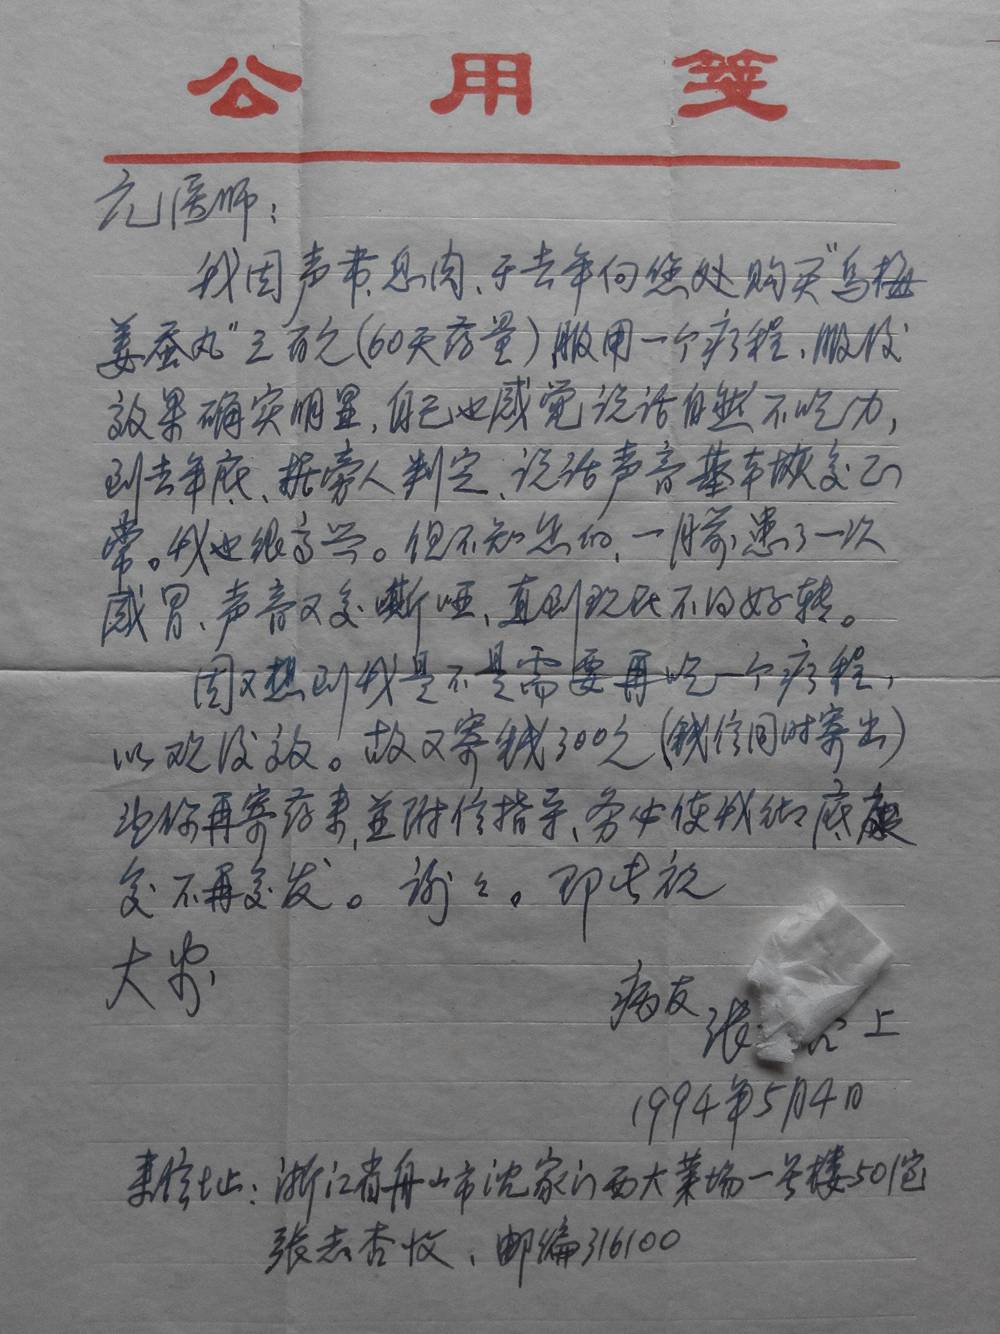 公用笺
亢医师：
我因声带息肉、于去年向您处购买"乌梅
姜蚕丸"三百元(60天药量)服用一个疗程，服后
效果确实明显，自己也感觉说话自然不吃力，
到去年底、据旁人判定、说话声音基本恢复正
常。我也很高兴。但不知怎的，一月前患了一次
感冒、声音又变嘶哑，直到现在不的好转。
因又想到我是不是需要再吃一个疗程，
以观后效。故又寄钱300元(钱信同时寄出)
您再寄药来，并附信指导、务必使我彻底康
复不再复发。谢々。即告祝
大安
病友 张 上
1994年5月4日
来信址：浙江省舟山市沈家门西大菜场一号楼501室
张志杏收、邮编316100